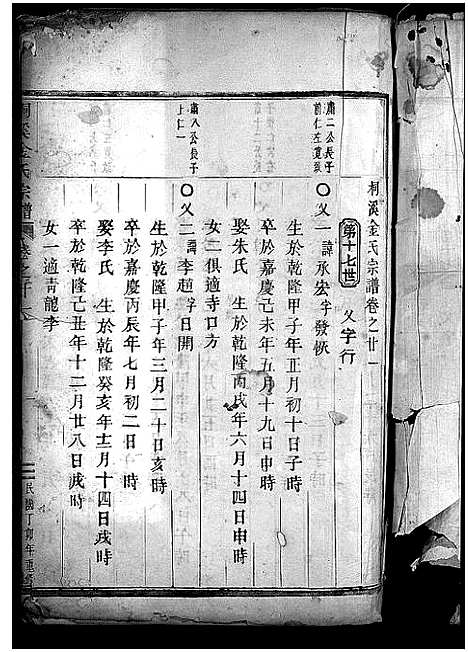 桐溪金氏宗譜卷之廿一
第十七世
乂字行
肅二公長子
前仁左寬頭
〇乂一諱承宏字發恢
生於乾隆甲子年正月初十日子時
卒於嘉慶己未年五月十九日申時
娶朱氏 生於乾隆丙戌年六月十四日申時
女二俱適寺口方
肅八公長子
上仁一
〇乂二諱李趙字日開
生於乾隆甲子年三月二十日亥時
卒於嘉慶丙辰年七月初二日 時
娶李氏 生於乾隆癸亥年十二月十四日戌時
卒於乾隆己丑年十二月廿八日戌時
女一適青龍李
金氏宗譜
民國丁卯年重修